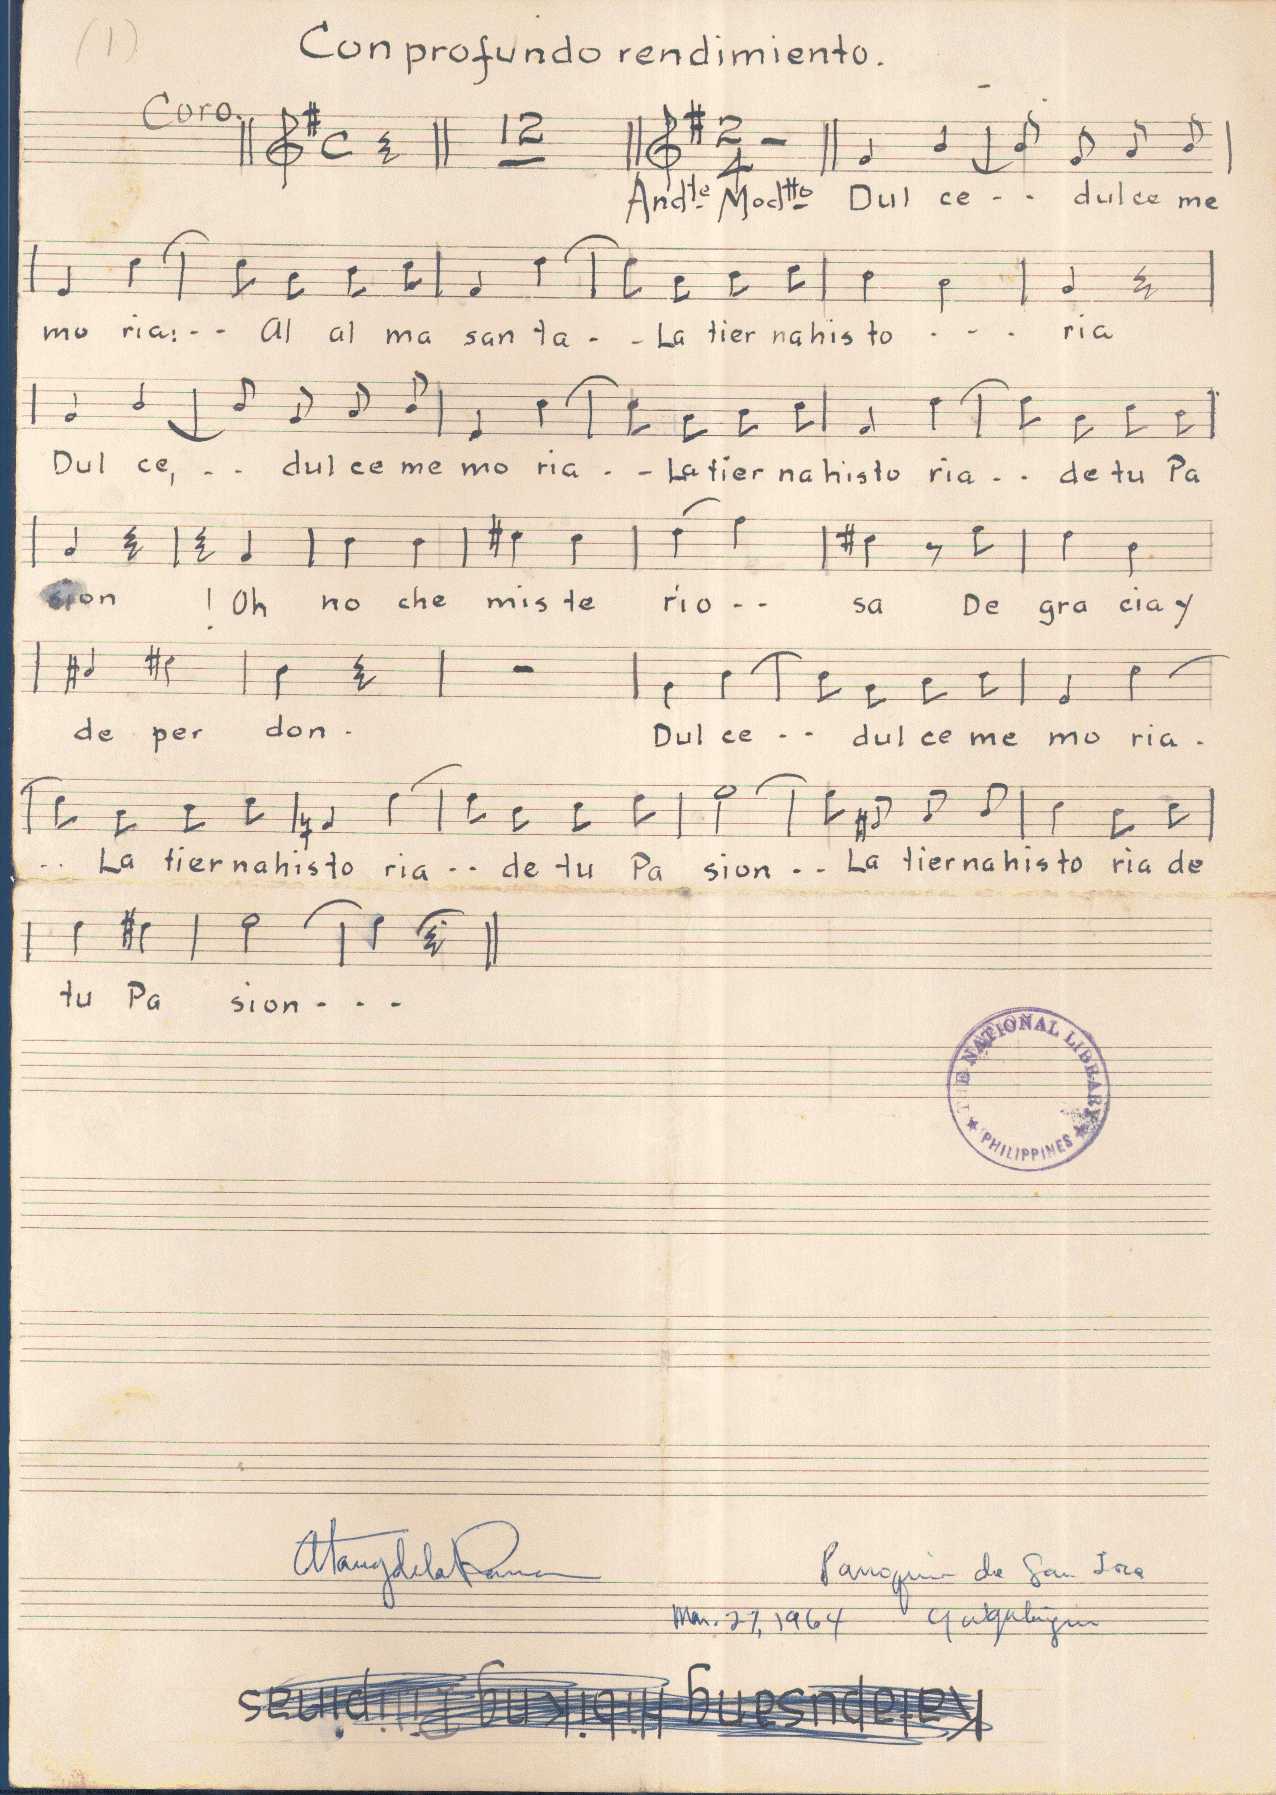 (1)
Con profundo rendimiento.
Coro.
C 12 2 4
And.te Mod.tto Dul ce - - dul ce me
mo ria: - - Al al ma san ta - - La tier na his to - - - ria
Dul ce, - - dul ce me mo ria - - La tier na his to ria - - de tu Pa
sion ! Oh no che mis te rio - - sa De gra cia y
de per don - Dul ce - - dul ce me mo ria -
- - La tier na his to ria - - de tu Pa sion - - La tier na his to ria de
tu Pa sion - - -
THE NATIONAL LIBRARY
★ PHILIPPINES ★
Atang de la Rama
Parroquia de San Jose
Mar. 27, 1964
Katapusang Hibik ng Pilipinas